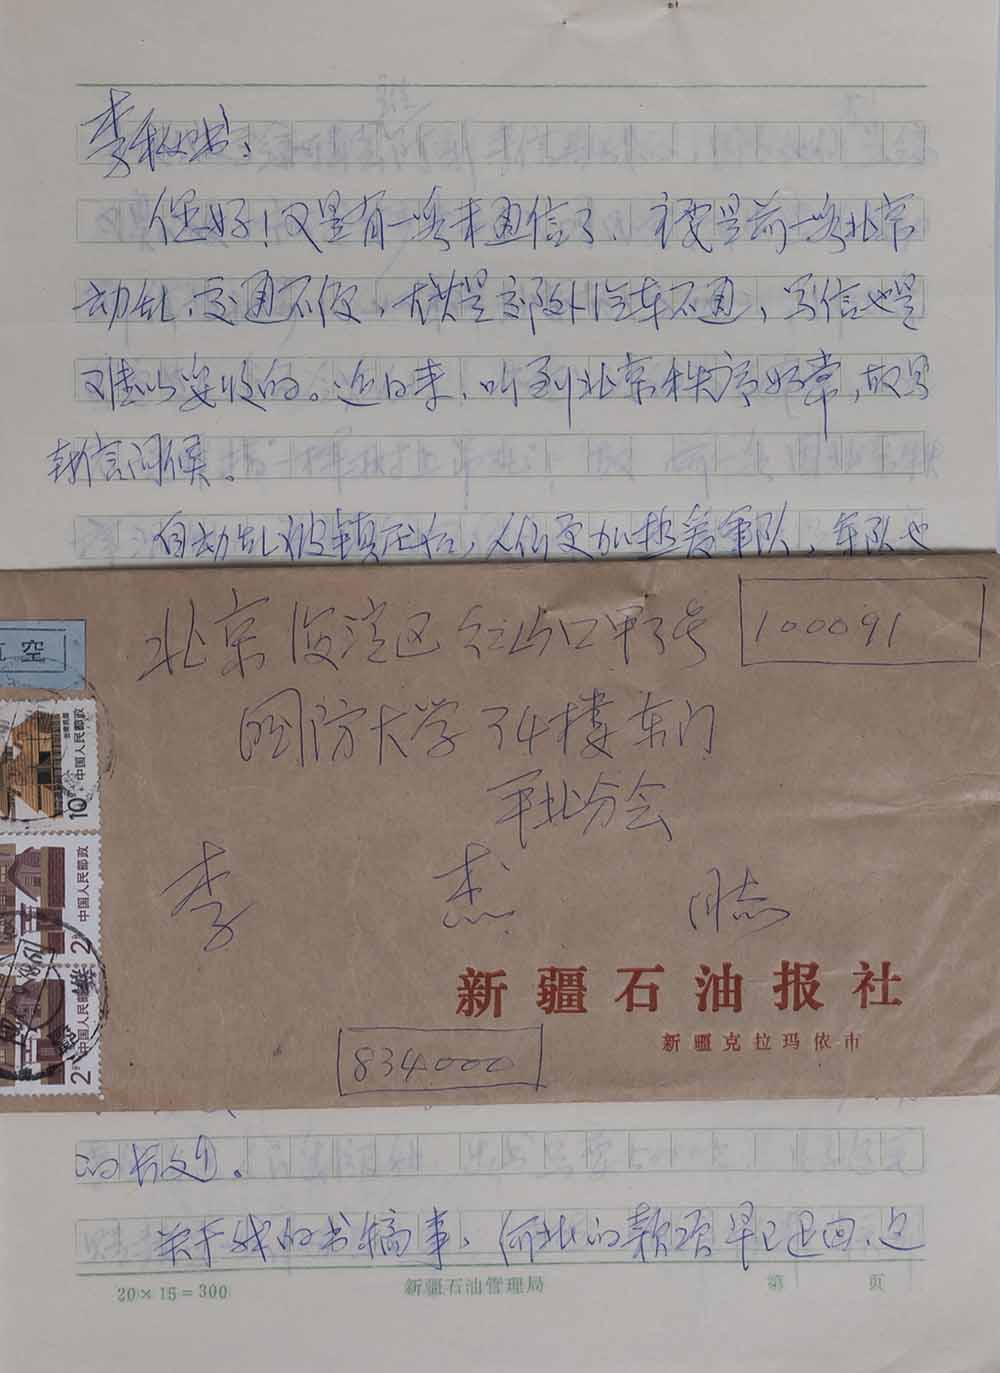 李秘书：
您好！又是有一段未通信了、主要是前一段北京
动乱，交通不便，尤其是郊外汽车不通，写信也是
难以妥收的。近日来，听到北京秩序好常，故写
封信问候。
自动乱被镇压后，人们更加热爱军队，军队也
空
北京海淀区红山口甲3号
100091
国防大学34楼东门
平北分会
李杰 同志
新疆石油报社
新疆克拉玛依市
834000
中国人民邮政
10
中国人民邮政
2
中国人民邮政
2
的长文。
关于我的书稿事，河北的款项早已退回，这
20×15=300
新疆石油管理局
第 页